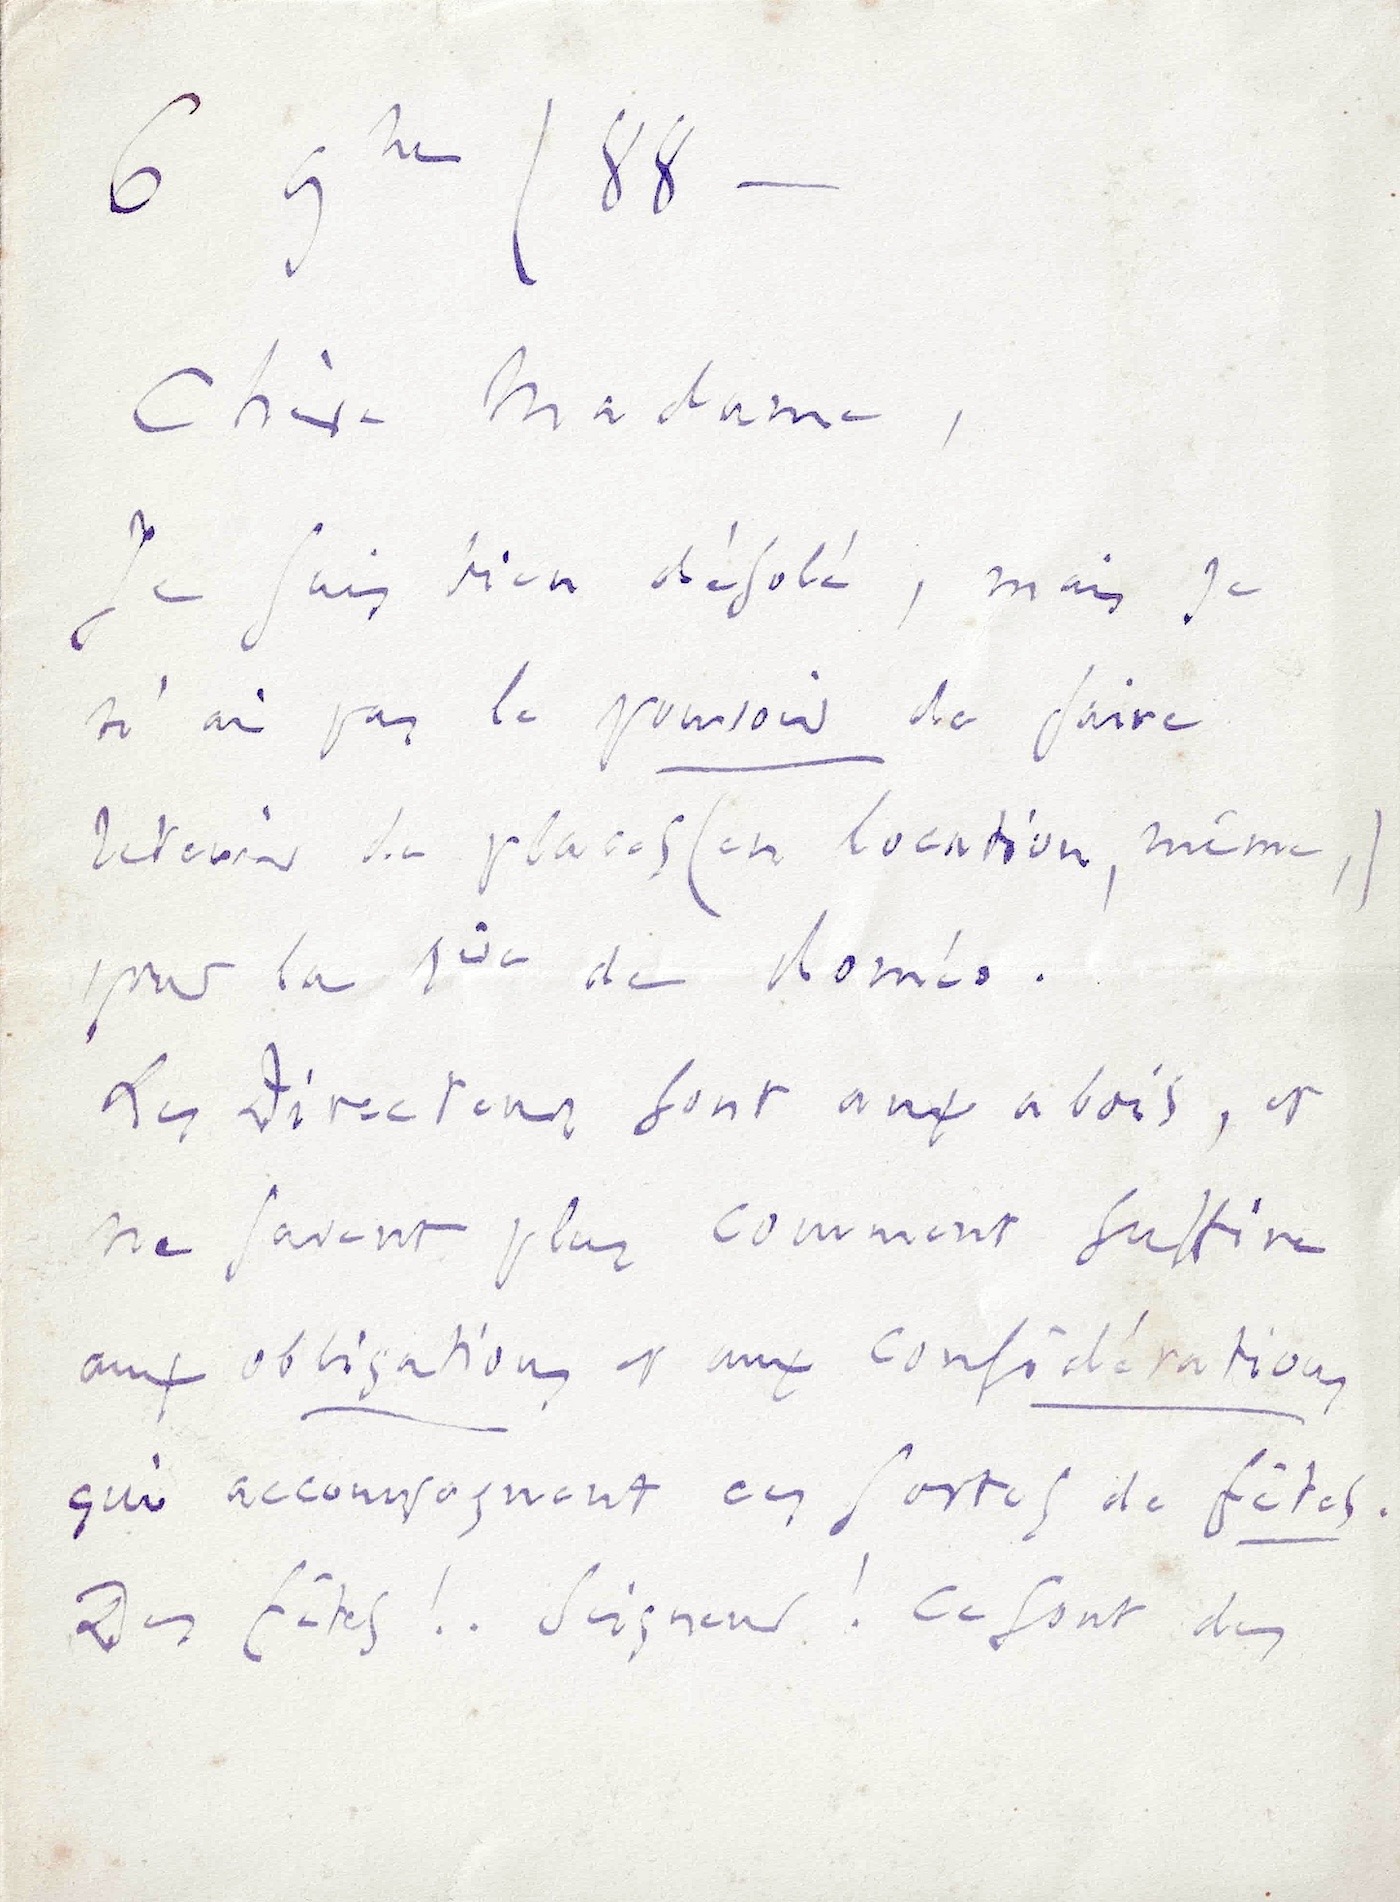 6 9bre / 88 —
Chère Madame,
Je suis bien désolé, mais je
n'ai pas le pouvoir de faire
retenir de places (en location, même,)
pour la 1ère de Roméo.
Les Directeurs sont aux abois, et
ne savent plus comment suffire
aux obligations et aux considérations
qui accompagnent ces sortes de fêtes.
Des fêtes!. Seigneur! Ce sont des